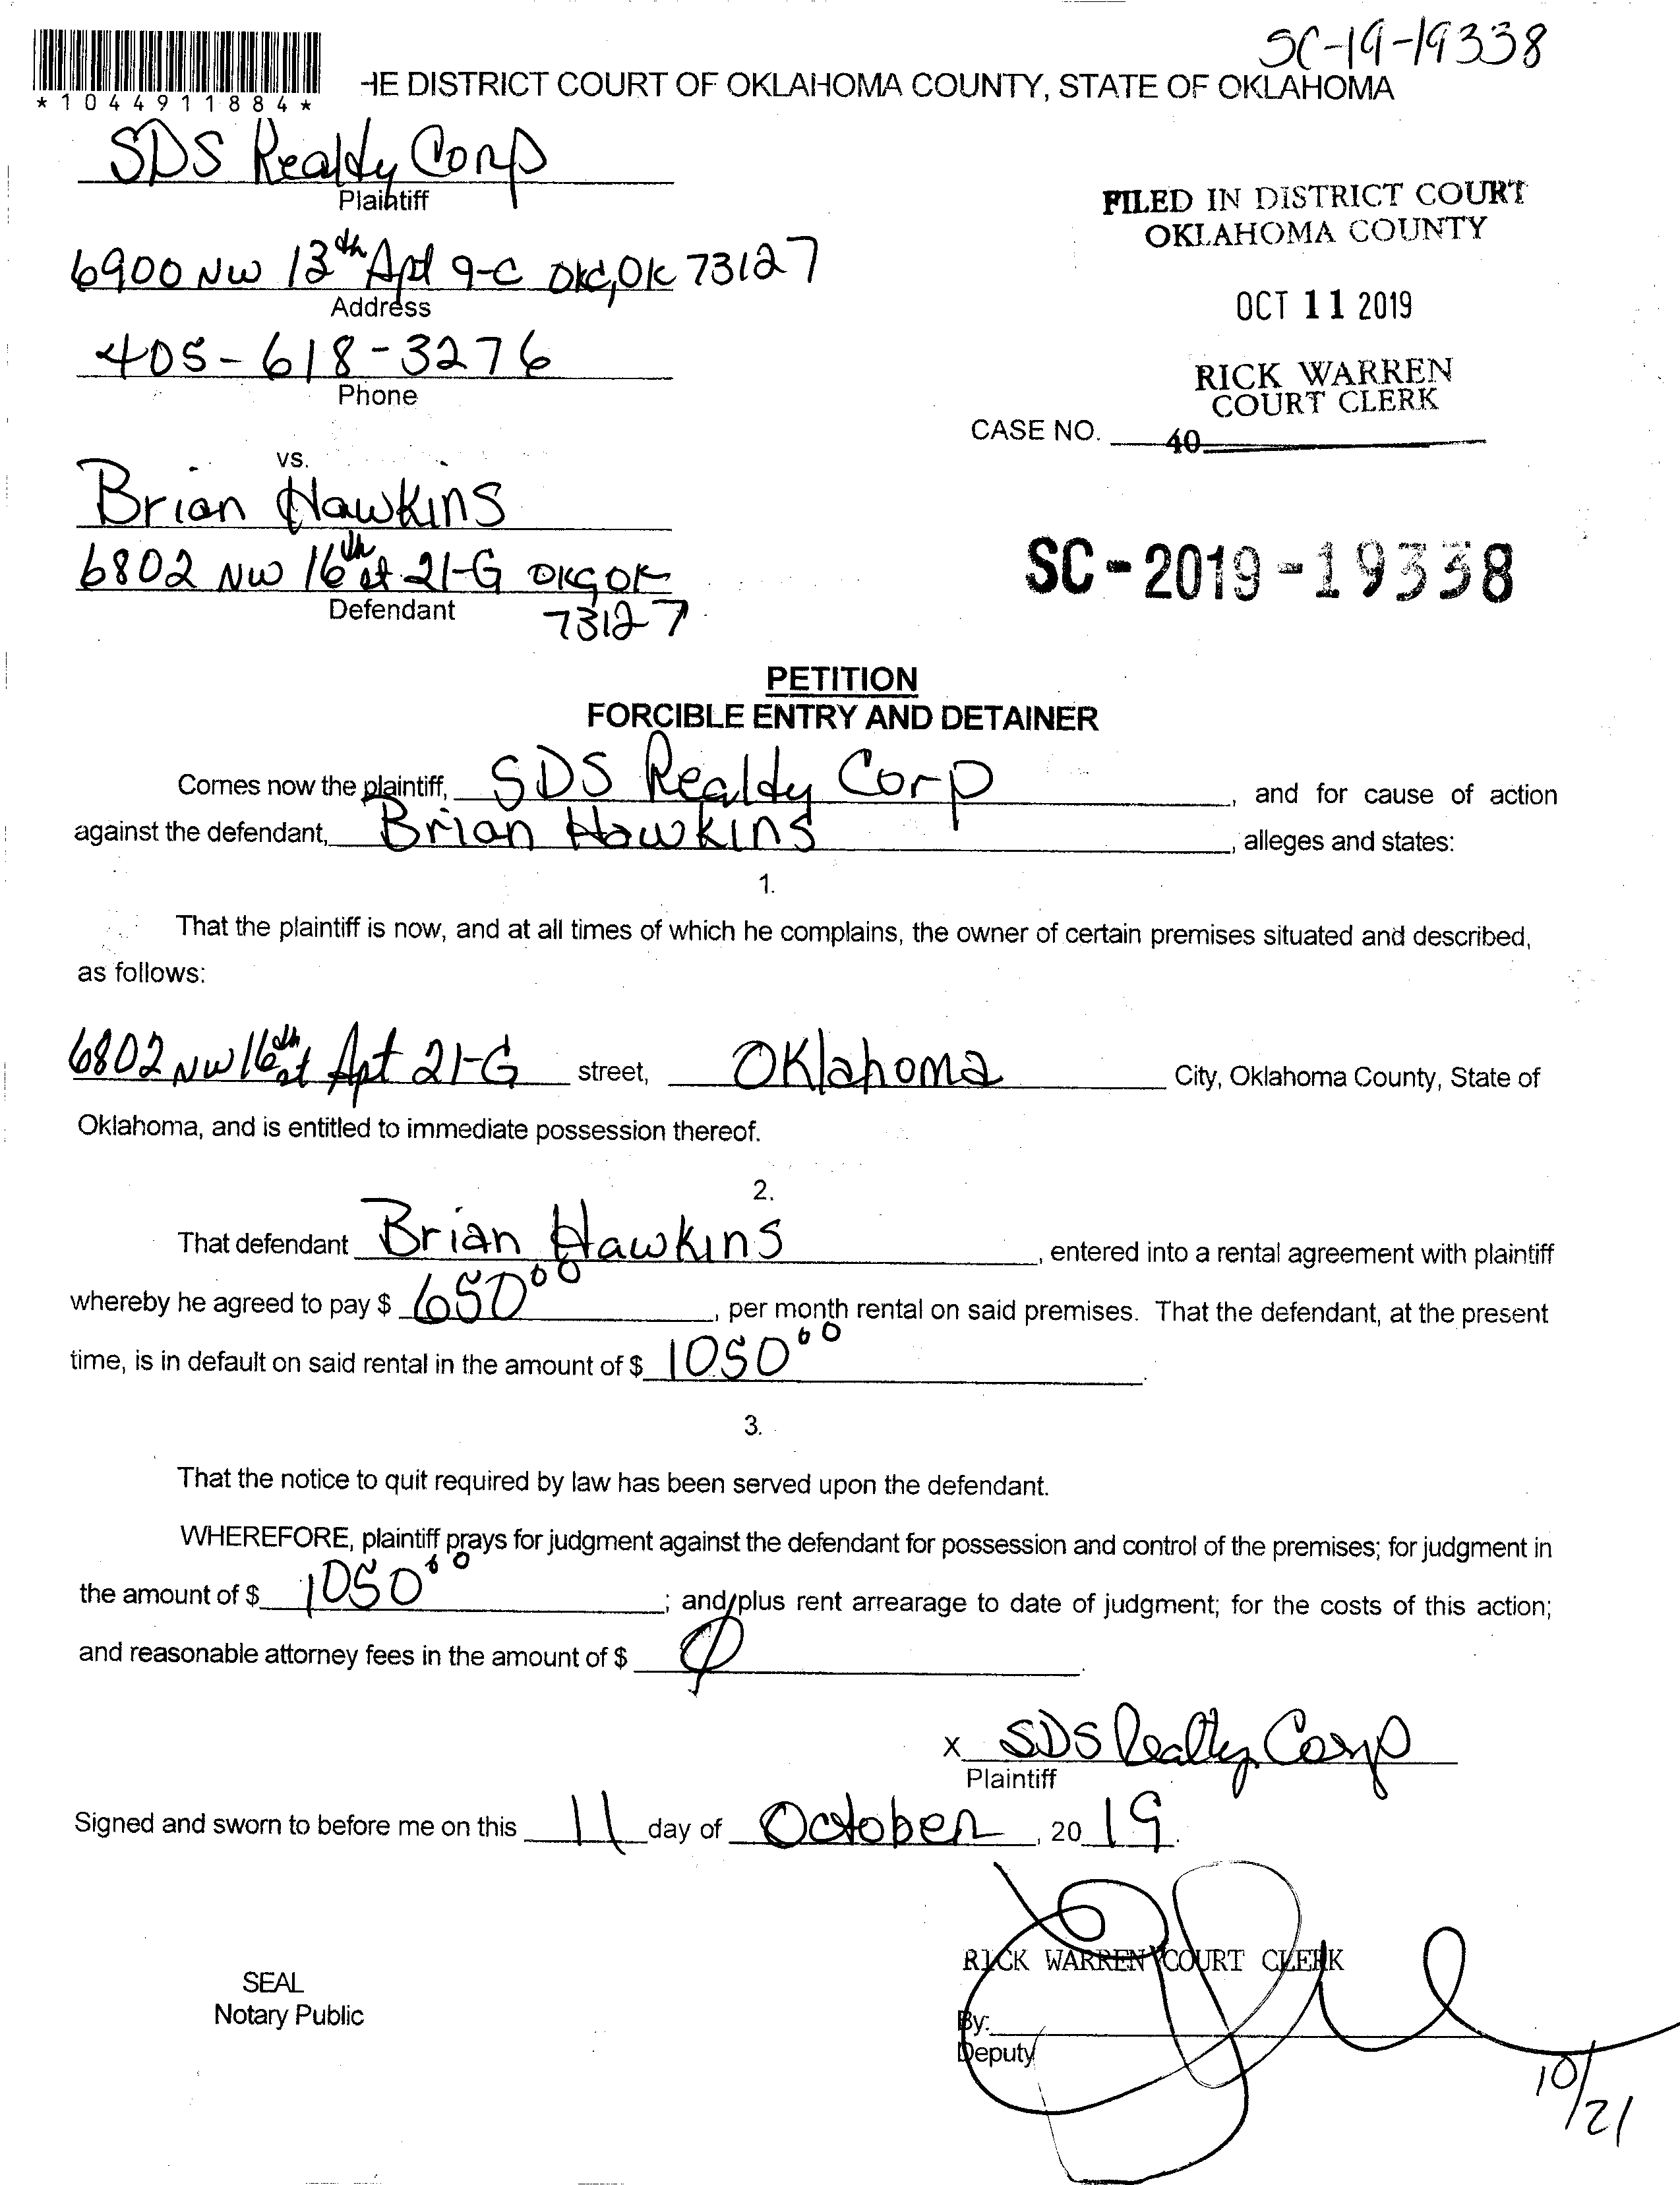 SC-19-19338
*1044911884*
HE DISTRICT COURT OF OKLAHOMA COUNTY, STATE OF OKLAHOMA
SDS Realty Corp
Plaintiff
6900 NW 13th Apt 9-C OKC, OK 73127
Address
405-618-3276
Phone
FILED IN DISTRICT COURT
OKLAHOMA COUNTY
OCT 11 2019
RICK WARREN
COURT CLERK
CASE NO. 40
vs.
Brian Hawkins
6802 NW 16th st 21-G OKC, OK
73127
Defendant
SC-2019-19338
PETITION
FORCIBLE ENTRY AND DETAINER
Comes now the plaintiff, SDS Realty Corp, and for cause of action
against the defendant, Brian Hawkins, alleges and states:
1.
That the plaintiff is now, and at all times of which he complains, the owner of certain premises situated and described,
as follows:
6802 NW 16th st Apt 21-G street, Oklahoma City, Oklahoma County, State of
Oklahoma, and is entitled to immediate possession thereof.
2.
That defendant Brian Hawkins, entered into a rental agreement with plaintiff
whereby he agreed to pay $ 650 00, per month rental on said premises. That the defendant, at the present
time, is in default on said rental in the amount of $ 1050 00.
3.
That the notice to quit required by law has been served upon the defendant.
WHEREFORE, plaintiff prays for judgment against the defendant for possession and control of the premises; for judgment in
the amount of $ 1050 00; and/plus rent arrearage to date of judgment; for the costs of this action;
and reasonable attorney fees in the amount of $ Ø.
X SDS Realty Corp
Plaintiff
Signed and sworn to before me on this 11 day of October, 2019.
RICK WARREN COURT CLERK
SEAL
Notary Public
By:
Deputy
10/21